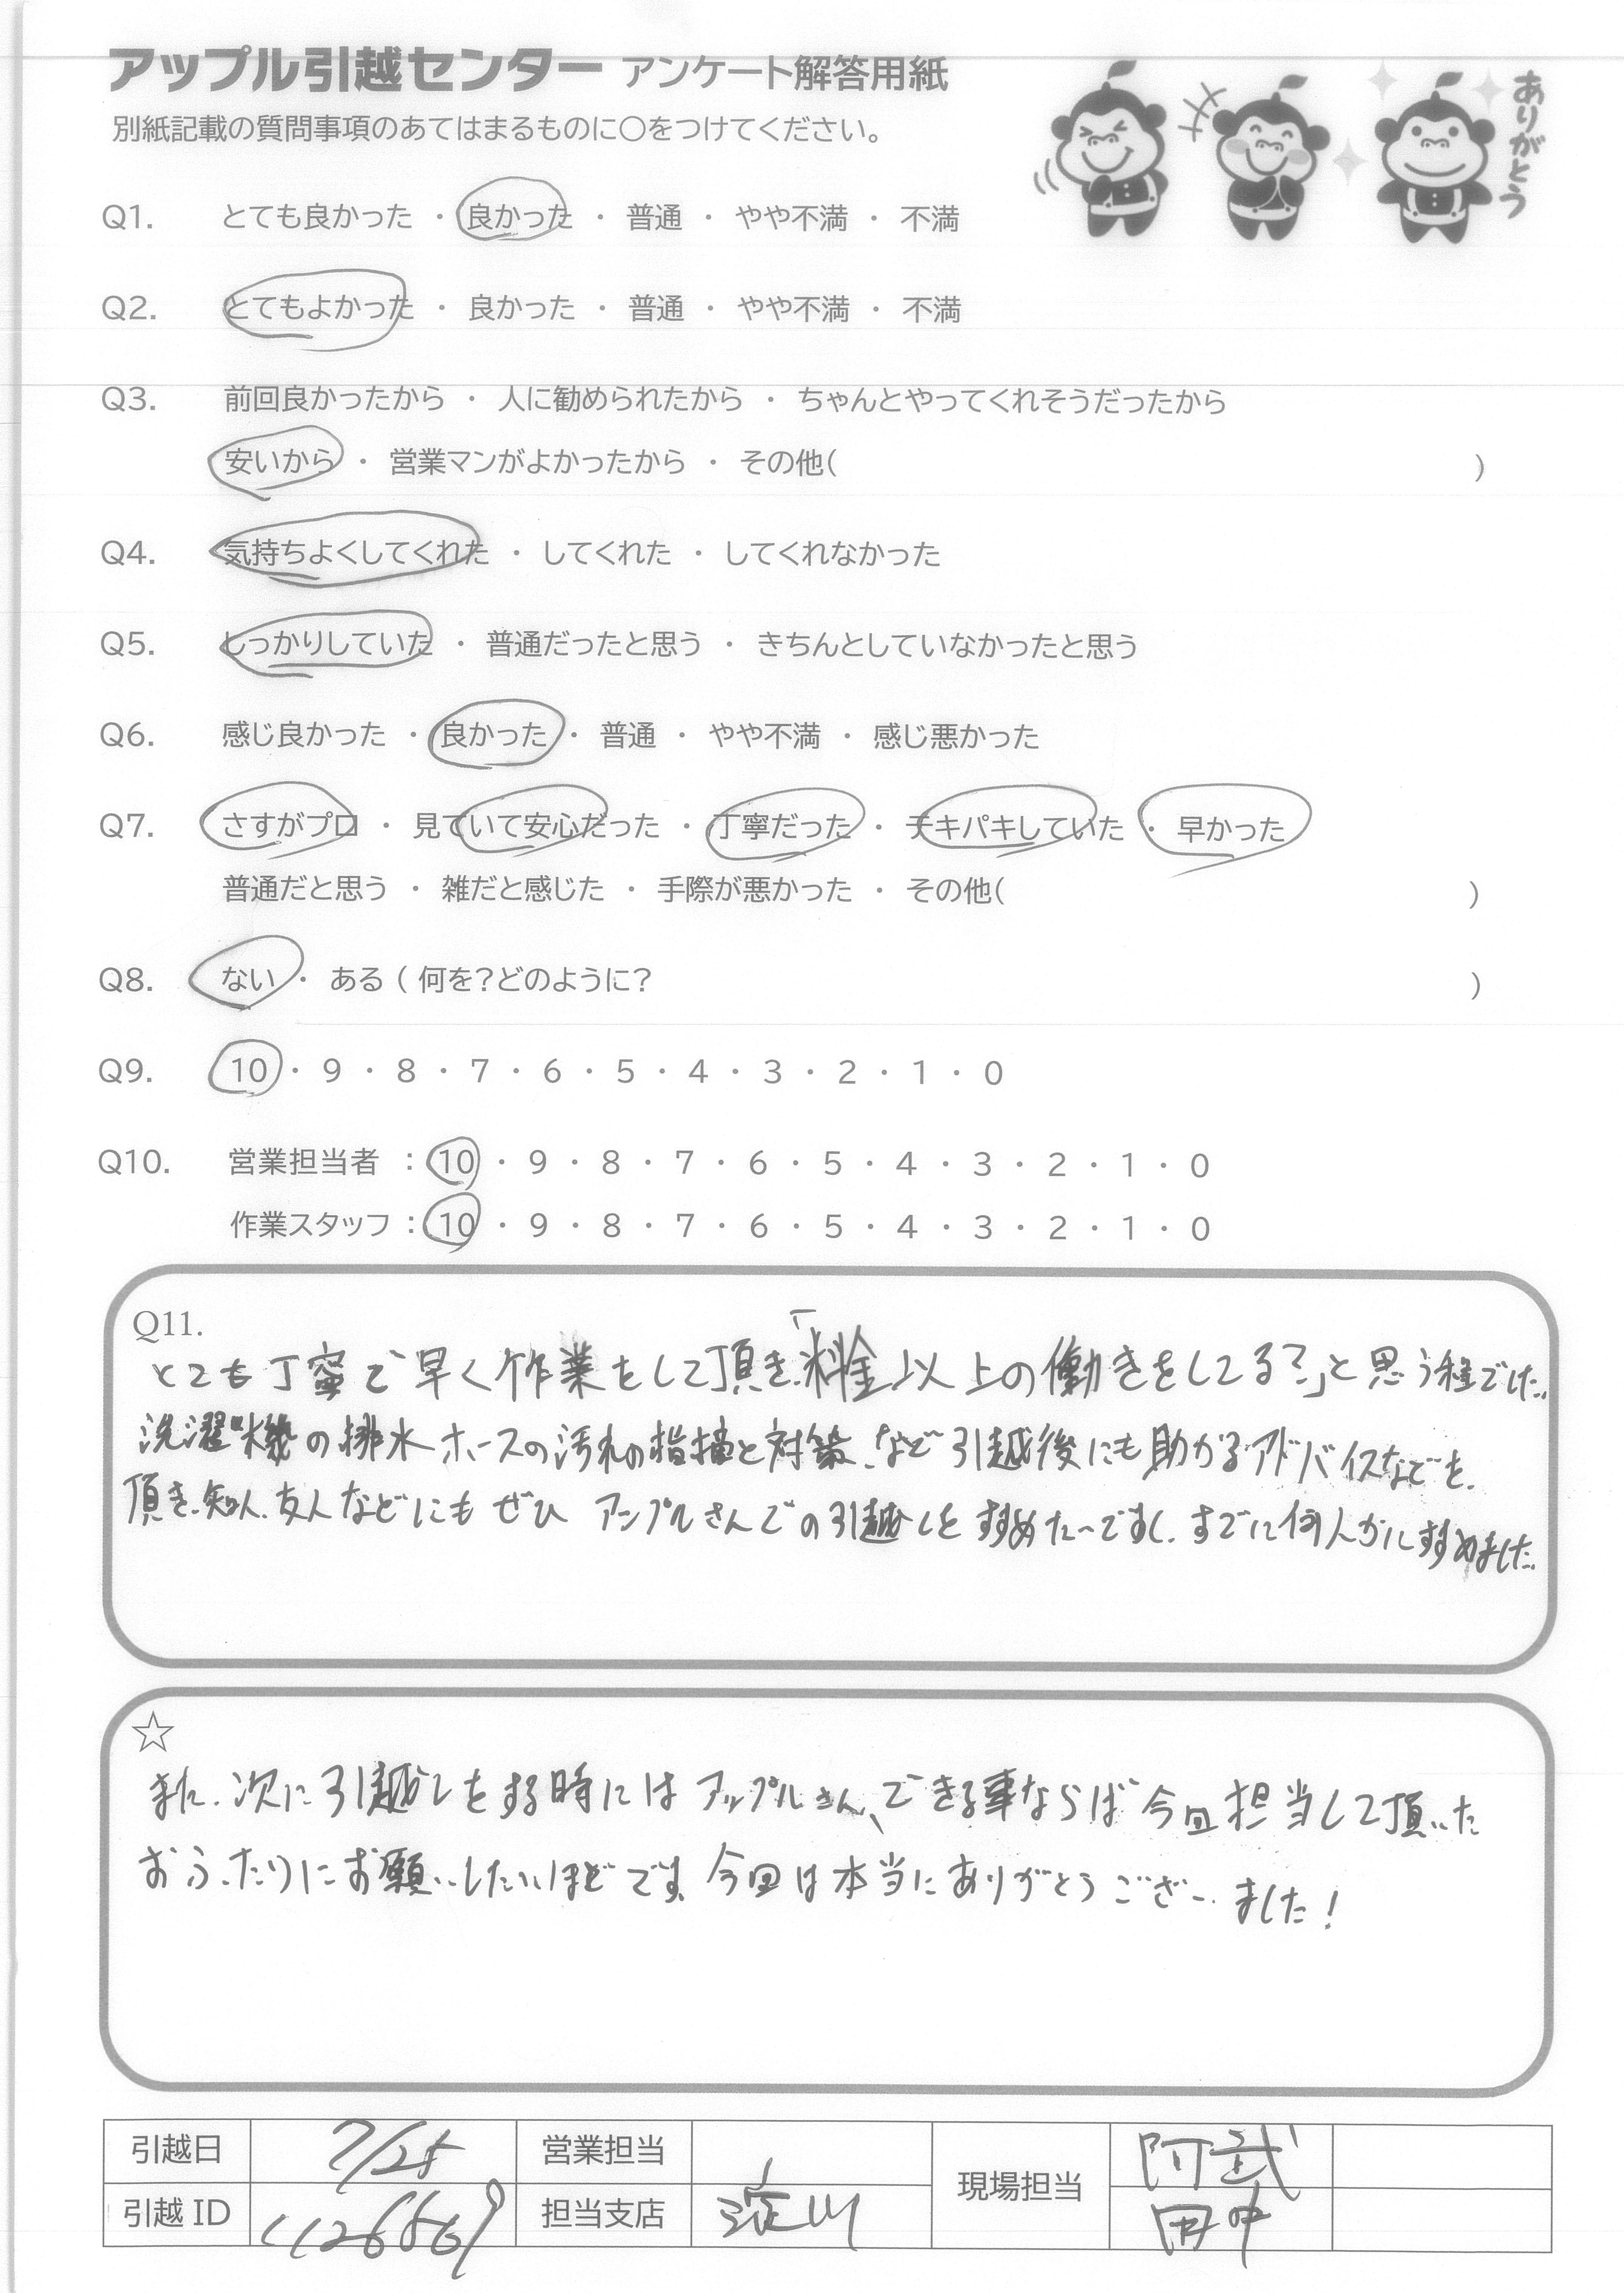 アップル引越センター アンケート解答用紙
ありがとう
別紙記載の質問事項のあてはまるものに○をつけてください。
Q1. とても良かった ・ 良かった ・ 普通 ・ やや不満 ・ 不満
Q2. とてもよかった ・ 良かった ・ 普通 ・ やや不満 ・ 不満
Q3. 前回良かったから ・ 人に勧められたから ・ ちゃんとやってくれそうだったから
安いから ・ 営業マンがよかったから ・ その他( )
Q4. 気持ちよくしてくれた ・ してくれた ・ してくれなかった
Q5. しっかりしていた ・ 普通だったと思う ・ きちんとしていなかったと思う
Q6. 感じ良かった ・ 良かった ・ 普通 ・ やや不満 ・ 感じ悪かった
Q7. さすがプロ ・ 見ていて安心だった ・ 丁寧だった ・ テキパキしていた ・ 早かった
普通だと思う ・ 雑だと感じた ・ 手際が悪かった ・ その他( )
Q8. ない ・ ある ( 何を?どのように? )
Q9. 10 ・ 9 ・ 8 ・ 7 ・ 6 ・ 5 ・ 4 ・ 3 ・ 2 ・ 1 ・ 0
Q10. 営業担当者 : 10 ・ 9 ・ 8 ・ 7 ・ 6 ・ 5 ・ 4 ・ 3 ・ 2 ・ 1 ・ 0
作業スタッフ : 10 ・ 9 ・ 8 ・ 7 ・ 6 ・ 5 ・ 4 ・ 3 ・ 2 ・ 1 ・ 0
Q11.
とても丁寧で早く作業をして頂き、「料金以上の働きをしてる?」と思う程でした。
洗濯機の排水ホースの汚れの指摘と対策、など引越後にも助かるアドバイスなどを、
頂き、知人、友人などにもぜひ アップルさんでの引越しをすすめたいですし、すでに何人かにすすめました。
☆
また、次に引越しをする時にはアップルさん、できる事ならば今回担当して頂いた
おふたりにお願いしたいほどです。今回は本当にありがとうございました!
引越日 7/25 営業担当 現場担当 阿武
引越ID 担当支店 淀川 田中